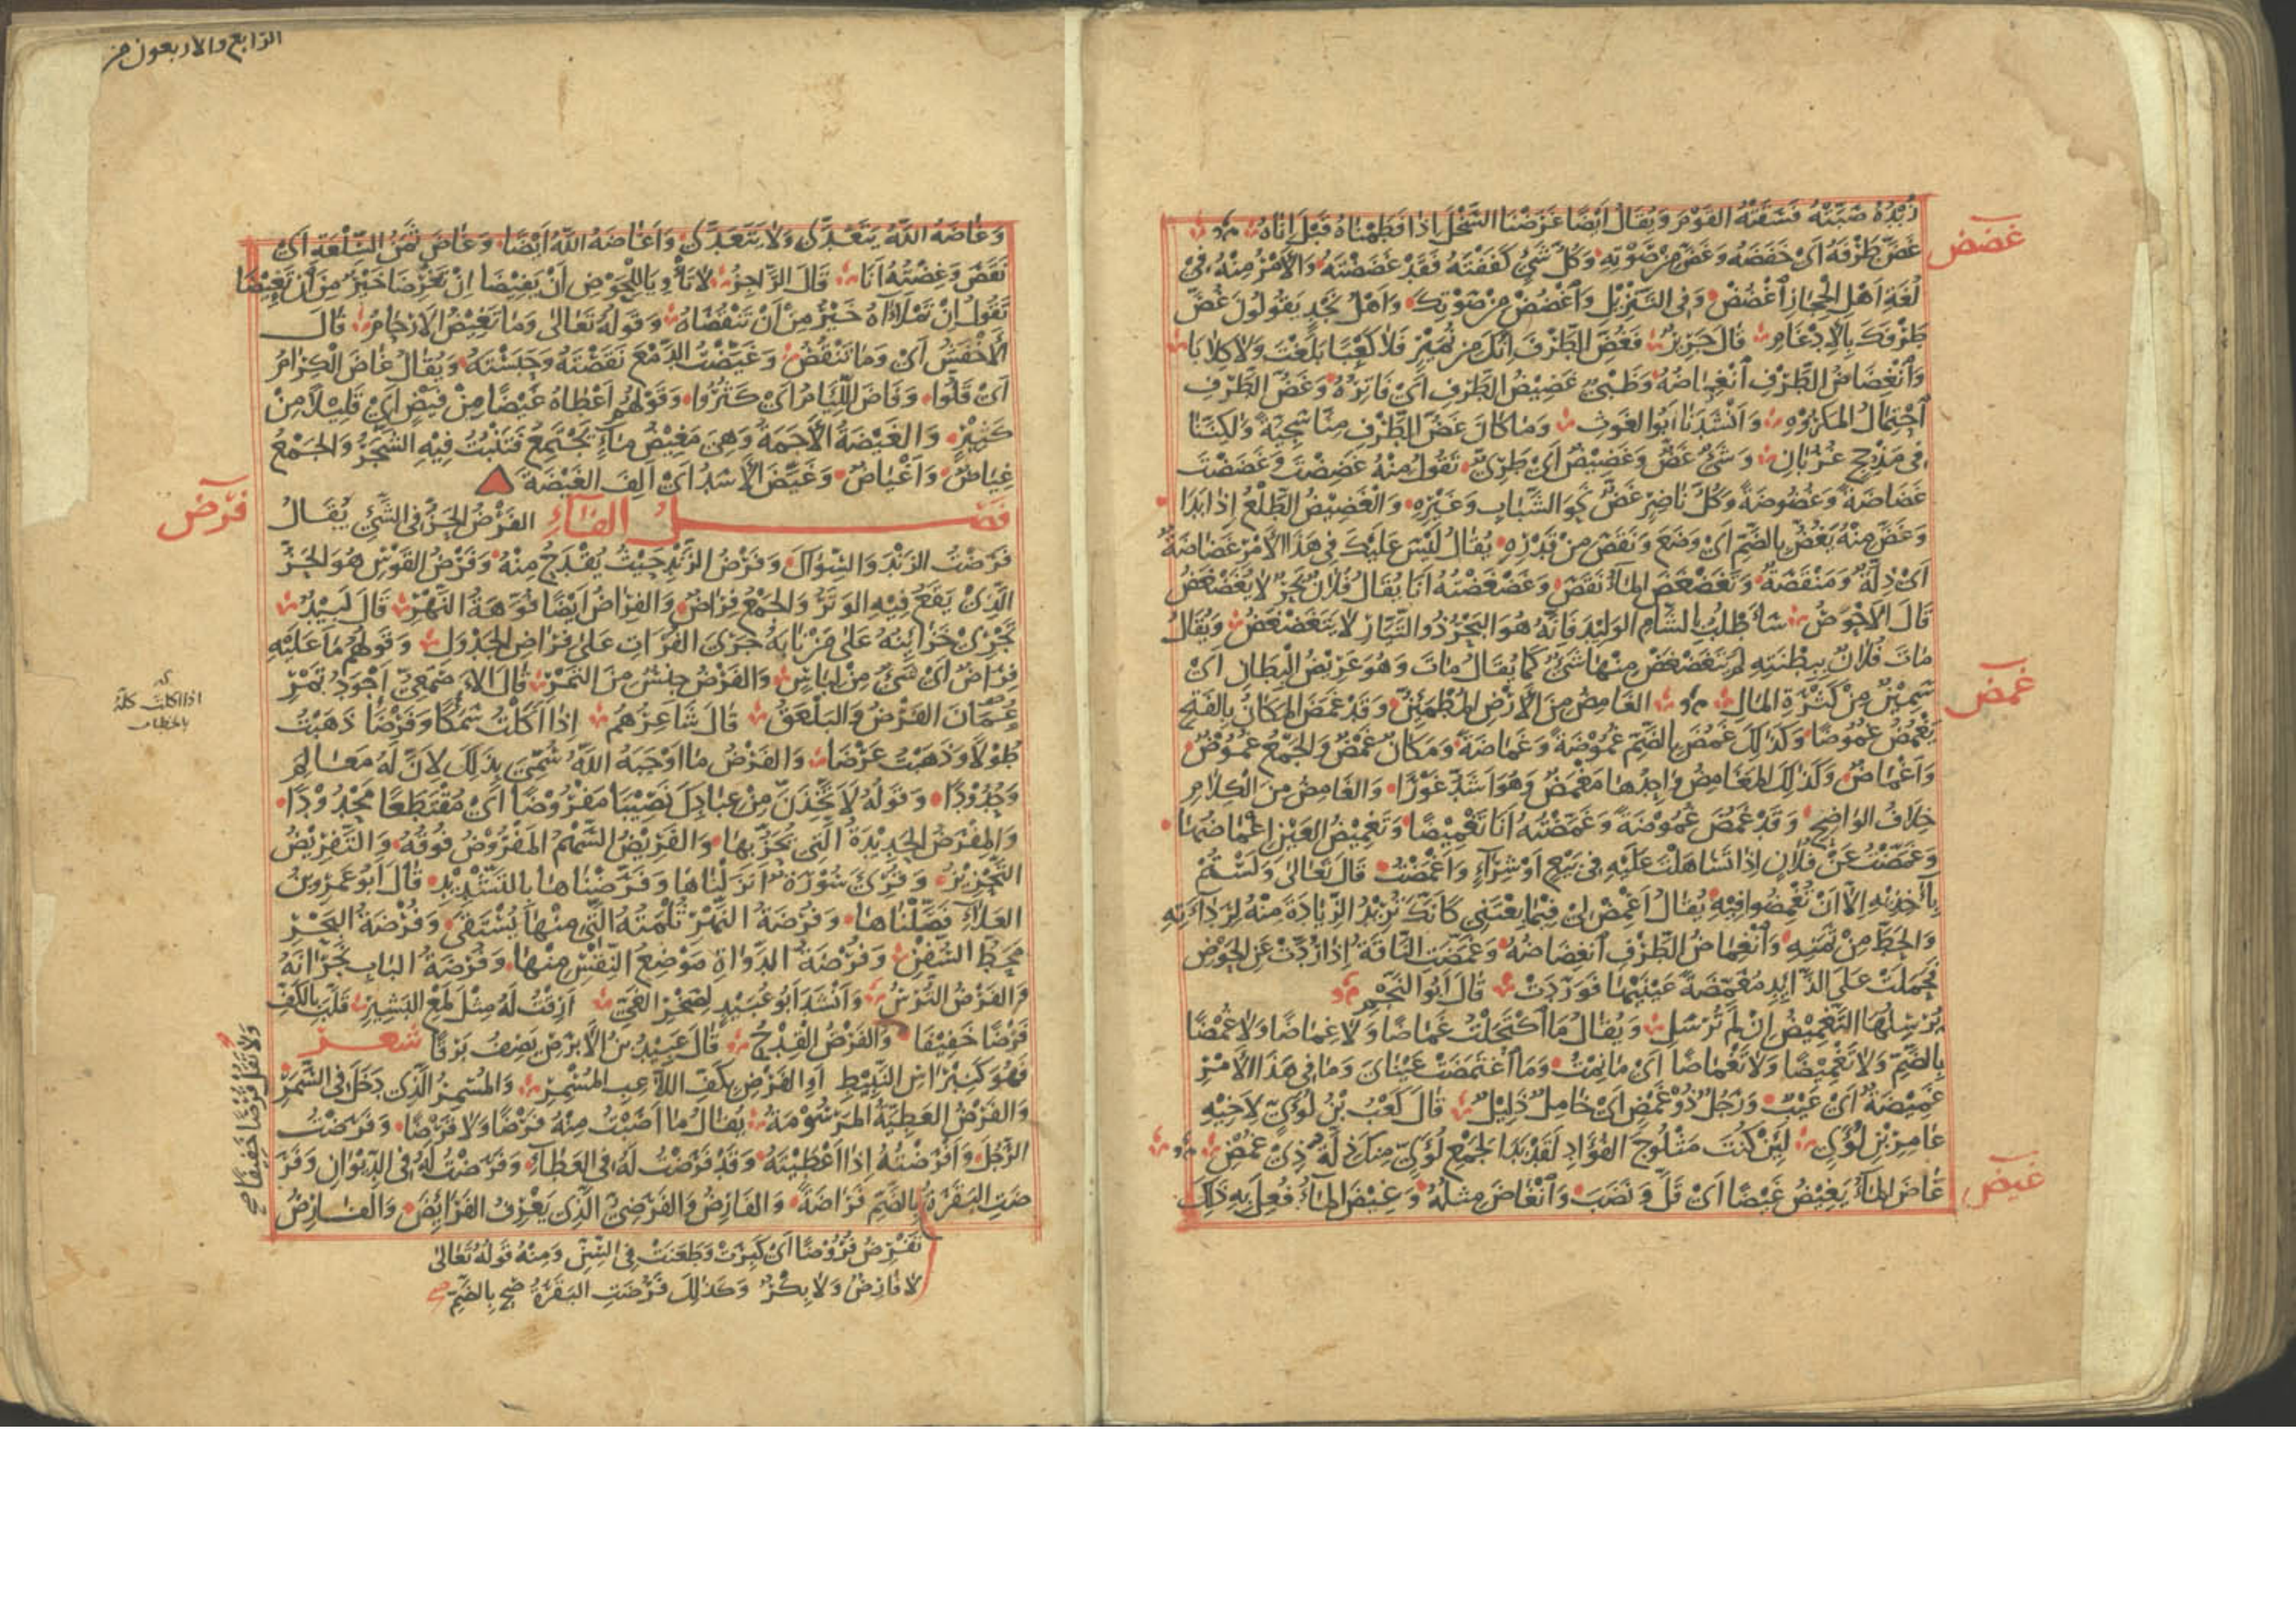 زُبْدُهُ صَبَّتْهُ فَسَقَتْهُ القَوْمَ وَيُقَالُ اَيْضًا غَرَضْنَا السَّخْلَ اِذَا فَطَمْنَاهُ قَبْلَ اِنَاهُ
غضض
غَضَّ طَرْفَهُ اَىْ خَفَضَهُ وَغَضَّ مِنْ صَوْتِهِ وَكُلُّ شَىْءٍ كَفَفْتَهُ فَقَدْ غَضَضْتَهُ وَالْاَمْرُ مِنْهُ فِى
لُغَةِ اَهْلِ الْحِجَازِ اُغْضُضْ وَفِى التَّنْزِيْلِ وَاغْضُضْ مِنْ صَوْتِكَ وَاَهْلُ نَجْدٍ يَقُوْلُوْنَ غُضَّ
طَرْفَكَ بِالْاِدْغَامِ قَالَ جَرِيْرٌ فَغُضَّ الطَّرْفَ اِنَّكَ مِنْ نُمَيْرٍ فَلَا كَعْبًا بَلَغْتَ وَلَا كِلَابَا
وَانْغِضَاضُ الطَّرْفِ انْغِمَاضُهُ وَظَبْىٌ غَضِيْضُ الطَّرْفِ اَىْ فَاتِرُهُ وَغَضُّ الطَّرْفِ
اِحْتِمَالُ المَكْرُوْهِ وَاَنْشَدَنَا اَبُو الغَوْثِ وَمَا كَانَ غَضُّ الطَّرْفِ مِنَّا سَجِيَّةً وَلٰكِنَّنَا
فِى مَذْحِجٍ غُرُبَانِ وَشَىْءٌ غَضٌّ وَغَضِيْضٌ اَىْ طَرِىٌّ تَقُوْلُ مِنْهُ غَضِضْتَ وَغَضَضْتَ
غَضَاضَةً وَغُضُوْضَةً وَكُلُّ نَاضِرٍ غَضٌّ نَحْوَ الشَّبَابِ وَغَيْرِهِ وَالْغَضِيْضُ الطَّلْعُ اِذَا بَدَا
وَغَضَّ مِنْهُ يَغُضُّ بِالضَّمِّ اَىْ وَضَعَ وَنَقَصَ مِنْ قَدْرِهِ يُقَالُ لَيْسَ عَلَيْكَ فِى هَذَا الْاَمْرِ غَضَاضَةٌ
اَىْ ذِلَّةٌ وَمَنْقَصَةٌ وَتَغَضْغَضَ المَاءُ نَقَصَ وَغَضْغَضْتُهُ اَنَا يُقَالُ فُلَانٌ بَحْرٌ لَا يُغَضْغَضُ
قَالَ الْاَحْوَصُ سَاَطْلُبُ بِالشَّامِ الوَلِيْدَ فَاِنَّهُ هُوَ البَحْرُ ذُو التَّيَّارِ لَا يَتَغَضْغَضُ وَيُقَالُ
مَاتَ فُلَانٌ بِبِطْنَتِهِ لَمْ يَتَغَضْغَضْ مِنْهَا شَىْءٌ كَمَا يُقَالُ مَاتَ وَهُوَ عَرِيْضُ الْبِطَانِ اَىْ
سَمِيْنٌ مِنْ كَثْرَةِ المَالِ الغَامِضُ مِنَ الْاَرْضِ المُطْمَئِنُّ وَقَدْ غَمَضَ المَكَانُ بِالفَتْحِ
غمض
يَغْمُضُ غُمُوْضًا وَكَذٰلِكَ غَمُضَ بِالضَّمِّ غُمُوْضَةً وَغَمَاضَةً وَمَكَانٌ غَمْضٌ وَالْجَمْعُ غُمُوْضٌ
وَاَغْمَاضٌ وَكَذٰلِكَ المَغَامِضُ وَاحِدُهَا مَغْمَضٌ وَهُوَ اَشَدُّ غَوْرًا وَالغَامِضُ مِنَ الْكَلَامِ
خِلَافُ الوَاضِحِ وَقَدْ غَمُضَ غُمُوْضَةً وَغَمَّضْتُهُ اَنَا تَغْمِيْضًا وَتَغْمِيْضُ العَيْنِ اِغْمَاضُهَا
وَغَمَّضْتُ عَنْ فُلَانٍ اِذَا تَسَاهَلْتَ عَلَيْهِ فِى بَيْعٍ اَوْ شِرَآءٍ وَاَغْمَضْتُ قَالَ تَعَالٰى وَلَسْتُمْ
بِاٰخِذِيْهِ اِلَّا اَنْ تُغْمِضُوا فِيْهِ يُقَالُ اَغْمِضْ لِىْ فِيْمَا بِعْتَنِى كَاَنَّكَ تُرِيْدُ الزِّيَادَةَ مِنْهُ لِرَدَآءَتِهِ
وَالحَطَّ مِنْ ثَمَنِهِ وَانْغِمَاضُ الطَّرْفِ انْغِضَاضُهُ وَغَمَّضَتِ النَّاقَةُ اِذَا رُدَّتْ عَنِ الحَوْضِ
فَحَمَلَتْ عَلَى الذَّائِدِ مُغَمِّضَةً عَيْنَيْهَا فَوَرَدَتْ قَالَ اَبُو النَّجْمِ
يُرْسِلُهَا التَّغْمِيْضُ اِنْ لَمْ تُرْسَلِ وَيُقَالُ مَا اكْتَحَلْتُ غَمَاضًا وَلَا غِمَاضًا وَلَا غُمْضًا
بِالضَّمِّ وَلَا تَغْمِيْضًا وَلَا تَغْمَاضًا اَىْ مَا نِمْتُ وَمَا اغْتَمَضَتْ عَيْنَاىَ وَمَا فِى هَذَا الْاَمْرِ
غَمِيْضَةٌ اَىْ عَيْبٌ وَرَجُلٌ ذُوْ غَمْضٍ اَىْ خَامِلٌ ذَلِيْلٌ قَالَ كَعْبُ بْنُ لُؤَىٍّ لِاَخِيْهِ
عَامِرِ بْنِ لُؤَىٍّ لَئِنْ كُنْتَ مَثْلُوْجَ الفُؤَادِ لَقَدْ بَدَا لِجَمْعِ لُؤَىٍّ مِنْكَ ذِلَّةُ ذِىْ غَمْضِ
غيض
غَاضَ المَاءُ يَغِيْضُ غَيْضًا اَىْ قَلَّ وَنَضَبَ وَانْغَاضَ مِثْلُهُ وَغِيْضَ المَاءُ فُعِلَ بِهِ ذٰلِكَ
الرابع والاربعون من
وَغَاضَهُ اللّٰهُ يَتَعَدَّى وَلَا يَتَعَدَّى وَاَغَاضَهُ اللّٰهُ اَيْضًا وَغَاضَ ثَمَنُ السِّلْعَةِ اَىْ
نَقَصَ وَغِضْتُهُ اَنَا قَالَ الرَّاجِزُ لَا تَأْوِيَا لِلْحَوْضِ اَنْ يَفِيْضَا اِنْ تَغْرِضَا خَيْرٌ مِنَ اَنْ تَغِيْضَا
تَقُوْلُ اِنْ تَمْلَآَهُ خَيْرٌ مِنْ اَنْ تَنْقُصَاهُ وَقَوْلُهُ تَعَالٰى وَمَا تَغِيْضُ الْاَرْحَامُ قَالَ
الْاَخْفَشُ اَىْ وَمَا تَنْقُصُ وَغَيَّضْتُ الدَّمْعَ نَقَصْتَهُ وَحَبَسْتَهُ وَيُقَالُ غَاضَ الْكِرَامُ
اَىْ قَلُّوا وَفَاضَ اللِّئَامُ اَىْ كَثُرُوا وَقَوْلُهُمْ اَعْطَاهُ غَيْضًا مِنْ فَيْضٍ اَىْ قَلِيْلًا مِنْ
كَثِيْرٍ وَالغَيْضَةُ الْاَجَمَةُ وَهِىَ مَغِيْضُ مَآءٍ يَجْتَمِعُ فَيَنْبُتُ فِيْهِ الشَّجَرُ وَالجَمْعُ
غِيَاضٌ وَاَغْيَاضٌ وَغَيَّضَ الْاَسَدُ اَىْ اَلِفَ الغَيْضَةَ
فرض
فصل الفاء الفَرْضُ الحَزُّ فِى الشَّىْءِ يُقَالُ
فَرَضْتُ الزَّنْدَ وَالسِّوَاكَ وَفَرْضُ الزَّنْدِ حَيْثُ يُقْدَحُ مِنْهُ وَفَرْضُ القَوْسِ هُوَ الحَزُّ
الَّذِىْ يَقَعُ فِيْهِ الوَتَرُ وَالجَمْعُ فِرَاضٌ وَالفِرَاضُ اَيْضًا فُوَّهَةُ النَّهْرِ قَالَ لَبِيْدٌ
تَجْرِىْ خَزَائِنُهُ عَلٰى مَنْ نَابَهُ جَرْىَ الفُرَاتِ عَلٰى فِرَاضِ الجَدْوَلِ وَقَوْلُهُمْ مَا عَلَيْهِ
فِرَاضٌ اَىْ شَىْءٌ مِنْ لِبَاسٍ وَالفَرْضُ جِنْسٌ مِنَ التَّمْرِ قَالَ الْاَصْمَعِىُّ اَجْوَدُ تَمْرِ
عُمَانَ الفَرْضُ وَالبَلْعَقُ قَالَ شَاعِرُهُمْ اِذَا اَكَلْتُ سَمَكًا وَفَرْضَا ذَهَبْتُ
طُوْلًا وَذَهَبْتُ عَرْضَا وَالفَرْضُ مَا اَوْجَبَهُ اللّٰهُ سُمِّىَ بِذٰلِكَ لِاَنَّ لَهُ مَعَالِمَ
وَحُدُوْدًا وَقَوْلُهُ لَاَتَّخِذَنَّ مِنْ عِبَادِكَ نَصِيْبًا مَفْرُوْضًا اَىْ مُقْتَطَعًا مَحْدُوْدًا
وَالمِفْرَضُ الحَدِيْدَةُ الَّتِى تُحَزُّ بِهَا وَالفَرِيْضُ السَّهْمُ المَفْرُوْضُ فُوْقُهُ وَالتَّفْرِيْضُ
التَّحْزِيْزُ وَقُرِئَ سُوْرَةٌ اَنْزَلْنَاهَا وَفَرَّضْنَاهَا بِالتَّشْدِيْدِ قَالَ اَبُو عَمْرِو بْنُ
العَلَاءِ فَصَّلْنَاهَا وَفُرْضَةُ النَّهْرِ ثُلْمَتُهُ الَّتِى مِنْهَا يُسْتَقٰى وَفُرْضَةُ البَحْرِ
مَحَطُّ السُّفُنِ وَفُرْضَةُ الدَّوَاةِ مَوْضِعُ النِّقْسِ مِنْهَا وَفُرْضَةُ البَابِ نَجْرَانُهُ
وَالفَرْضُ التُّرْسُ وَاَنْشَدَ اَبُو عُبَيْدٍ لِصَخْرِ الغَىِّ اَرِقْتُ لَهُ مِثْلَ لَمْعِ البَشِيْرِ قَلَّبَ بِالكَفِّ
فَرْضًا خَفِيْفَا وَالفَرْضُ القِدْحُ قَالَ عَبِيْدُ بْنُ الْاَبْرَصِ يَصِفُ بَرْقًا شعر
فَهُوَ كَنِبْرَاسِ النَّبِيْطِ اَوِ الفَرْضِ بِكَفِّ اللَّاعِبِ المُسْمِرِ وَالمُسْمِرُ الَّذِى دَخَلَ فِى السَّمَرِ
وَالفَرْضُ العَطِيَّةُ المَرْسُوْمَةُ يُقَالُ مَا اَصَبْتُ مِنْهُ فَرْضًا وَلَا قَرْضًا وَفَرَضْتُ
الرَّجُلَ وَاَفْرَضْتُهُ اِذَا اَعْطَيْتَهُ وَقَدْ فَرَضْتُ لَهُ فِى العَطَاءِ وَفَرَضْتُ لَهُ فِى الدِّيْوَانِ وَفَرُ
ضَتِ البَقَرَةُ بِالضَّمِّ فَرَاضَةً وَالفَارِضُ وَالفَرَضِىُّ الَّذِى يَعْرِفُ الفَرَائِضَ وَالفَارِضُ
تَفْرِضُ فُرُوْضًا اَىْ كَبِرَتْ وَطَعَنَتْ فِى السِّنِّ وَمِنْهُ قَوْلُهُ تَعَالٰى
لَا فَارِضٌ وَلَا بِكْرٌ وَكَذٰلِكَ فَرُضَتِ البَقَرَةُ صح بِالضَّمِّ
اذا اكلت
وَلَا تَقُلْ قُرْصًا خَفِيْفًا صح